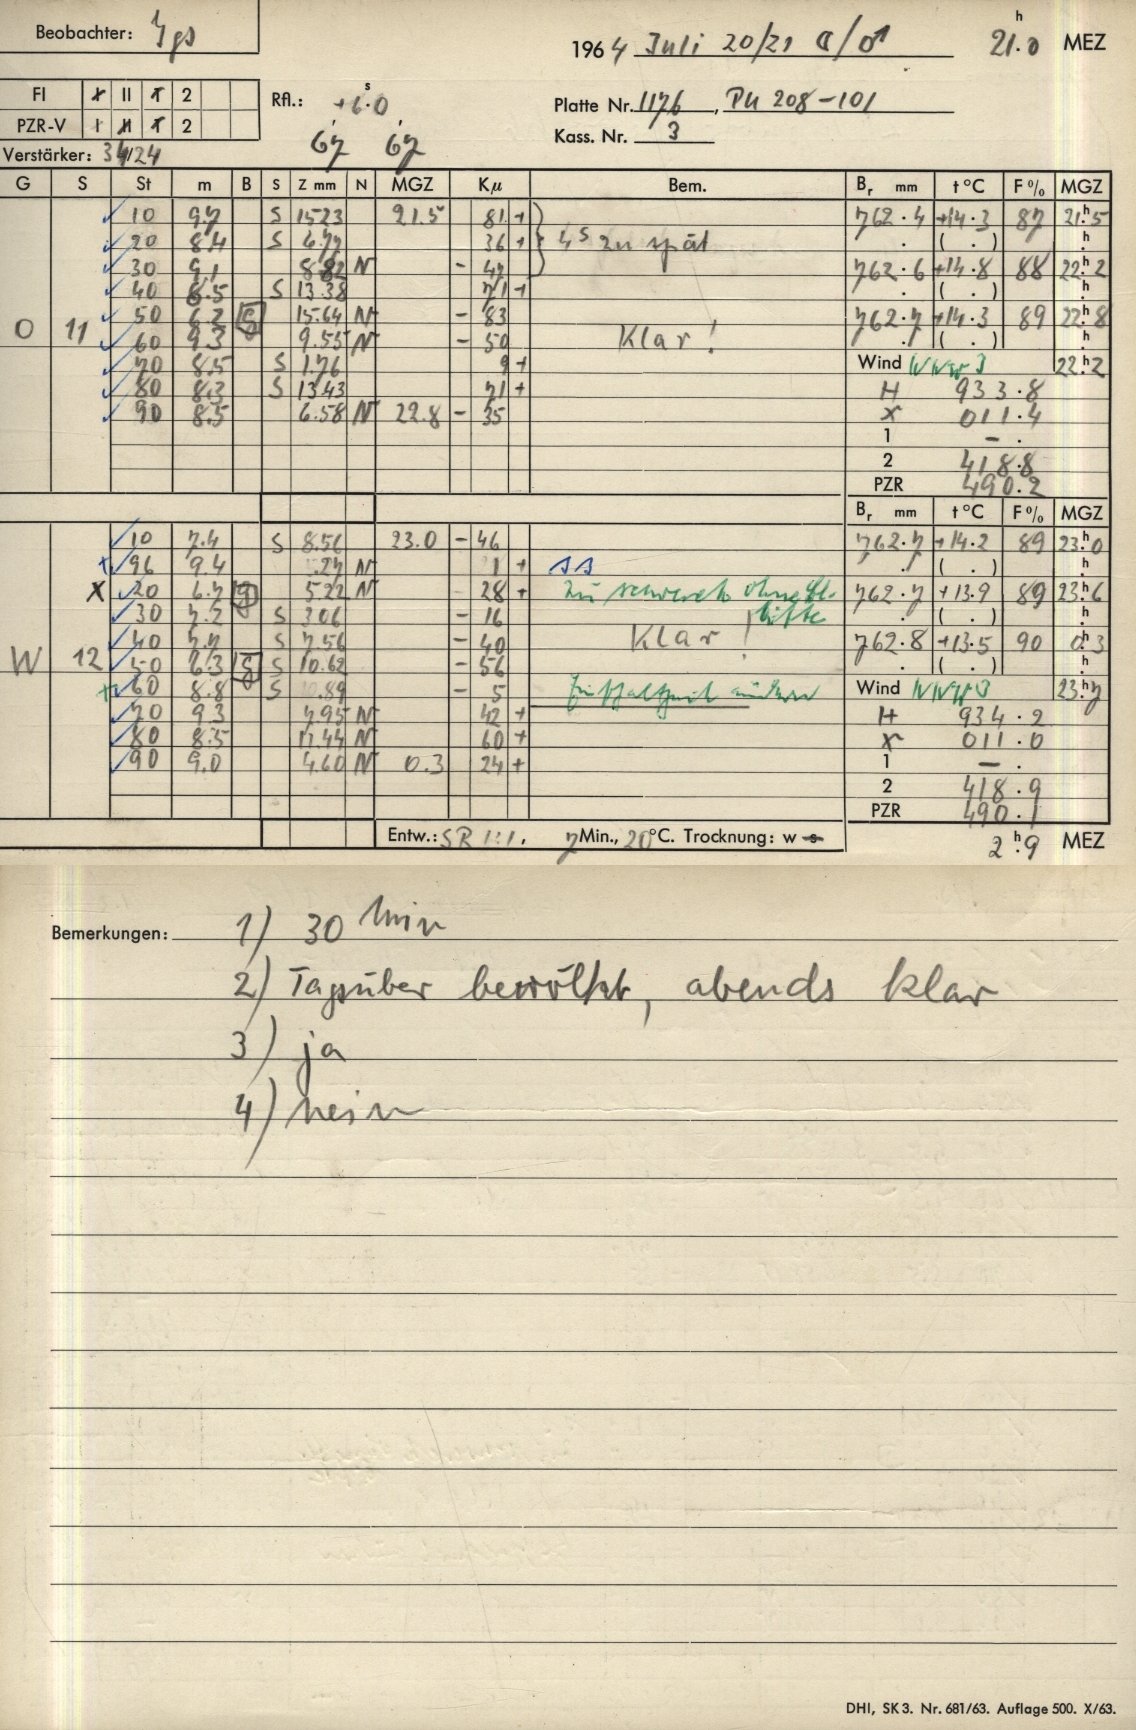 Beobachter: Ygs
1964 Juli 20/21 ☾/♂ 21.h0 MEZ
FI I II T 2
PZR-V I II T 2
Rfl.: +6.s0
67 67
Platte Nr. 1176, PU 208-101
Kass. Nr. 3
Verstärker: 34/24
G S St m B S Z mm N MGZ Kμ Bem. Br mm t°C F% MGZ
10 9.7 S 15.23 21.5 81 + 762.4 +14.3 87 21.h5
20 8.4 S 6.77 36 + 4s zu spät . ( . ) h
30 9.1 8.82 N - 47 762.6 +14.8 88 22.h2
40 8.5 S 13.38 71 + . ( . ) h
O 11 50 6.2 g 15.64 N - 83 762.7 +14.3 89 22.h8
60 9.3 9.55 N - 50 Klar! . ( . ) h
70 8.5 S 1.76 9 + Wind WNW 3 22.h2
80 8.3 S 13.43 71 + H 933.8
90 8.5 6.58 N 22.8 - 35 X 011.4
1 - .
2 418.8
PZR 490.2
Br mm t°C F% MGZ
10 7.4 S 8.56 23.0 - 46 762.7 +14.2 89 23.h0
+ 96 9.4 .27 N 1 + ss . ( . ) h
X 20 6.7 g 5.22 N 28 + zu schwach ohne 762.7 +13.9 89 23.h6
30 7.2 S 3.06 - 16 . ( . ) h
40 7.7 S 7.56 - 40 Klar! 762.8 +13.5 90 0.h3
W 12 50 6.3 g S 10.62 - 56 . ( . ) h
+ 60 8.8 S 0.89 - 5 Wind WNW 3 23.h7
70 9.3 7.95 N 42 + H 934.2
80 8.5 11.44 N 60 + X 011.0
90 9.0 4.60 N 0.3 24 + 1 - .
2 418.9
PZR 490.1
Entw.: SR 1:1. 7 Min., 20°C. Trocknung: w s 2.h9 MEZ
Bemerkungen: 1) 30 Min
2) Tagsüber bewölkt, abends klar
3) ja
4) nein
DHI, SK 3. Nr. 681/63. Auflage 500. X/63.